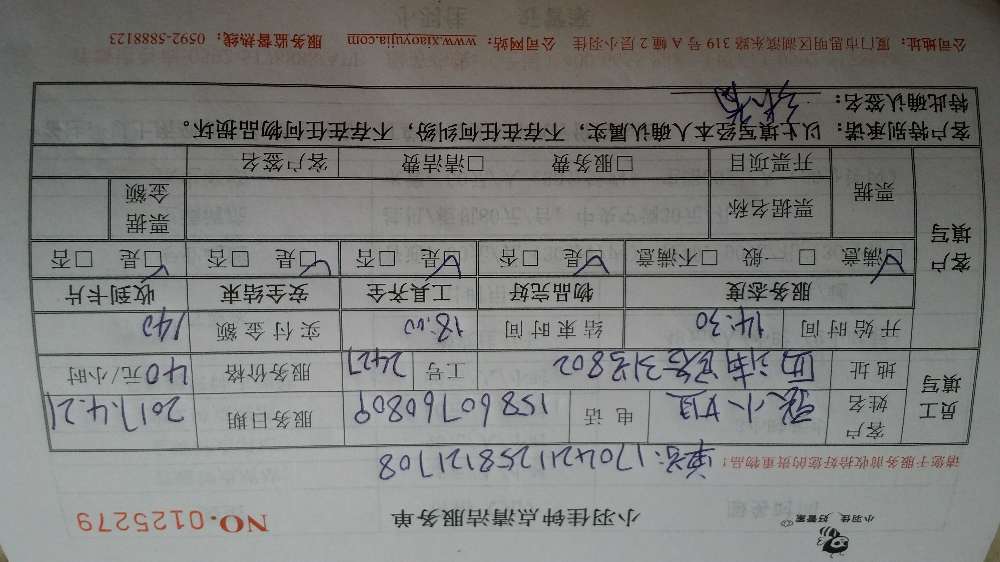 小羽佳 好管家
小羽佳钟点清洁服务单 NO.0125279
单号:170421125812170 8
请您于服务前收拾好您的贵重物品!
员工填写
客户姓名 张小姐 电话 15860760809 服务日期 2017.4.21
地址 313802 工号 2427 服务价格 40元/小时
开始时间 14:30 结束时间 18:00 实付金额 140
客户填写
服务态度 物品完好 工具齐全 安全结束 收到卡片
☑满意 □一般 □不满意 ☑是 □否 ☑是 □否 ☑是 □否 ☑是 □否
票据 票据名称 票据金额
开票项目 □服务费 □清洁费 客户签名
客户特别承诺:以上填写经本人确认属实,不存在任何纠纷,不存在任何物品损坏。
特此确认签名:
公司地址:厦门市思明区湖滨东路 319 号 A 幢 2 层小羽佳 公司网站:www.xiaoyujia.com 服务监督热线:0592-5888123